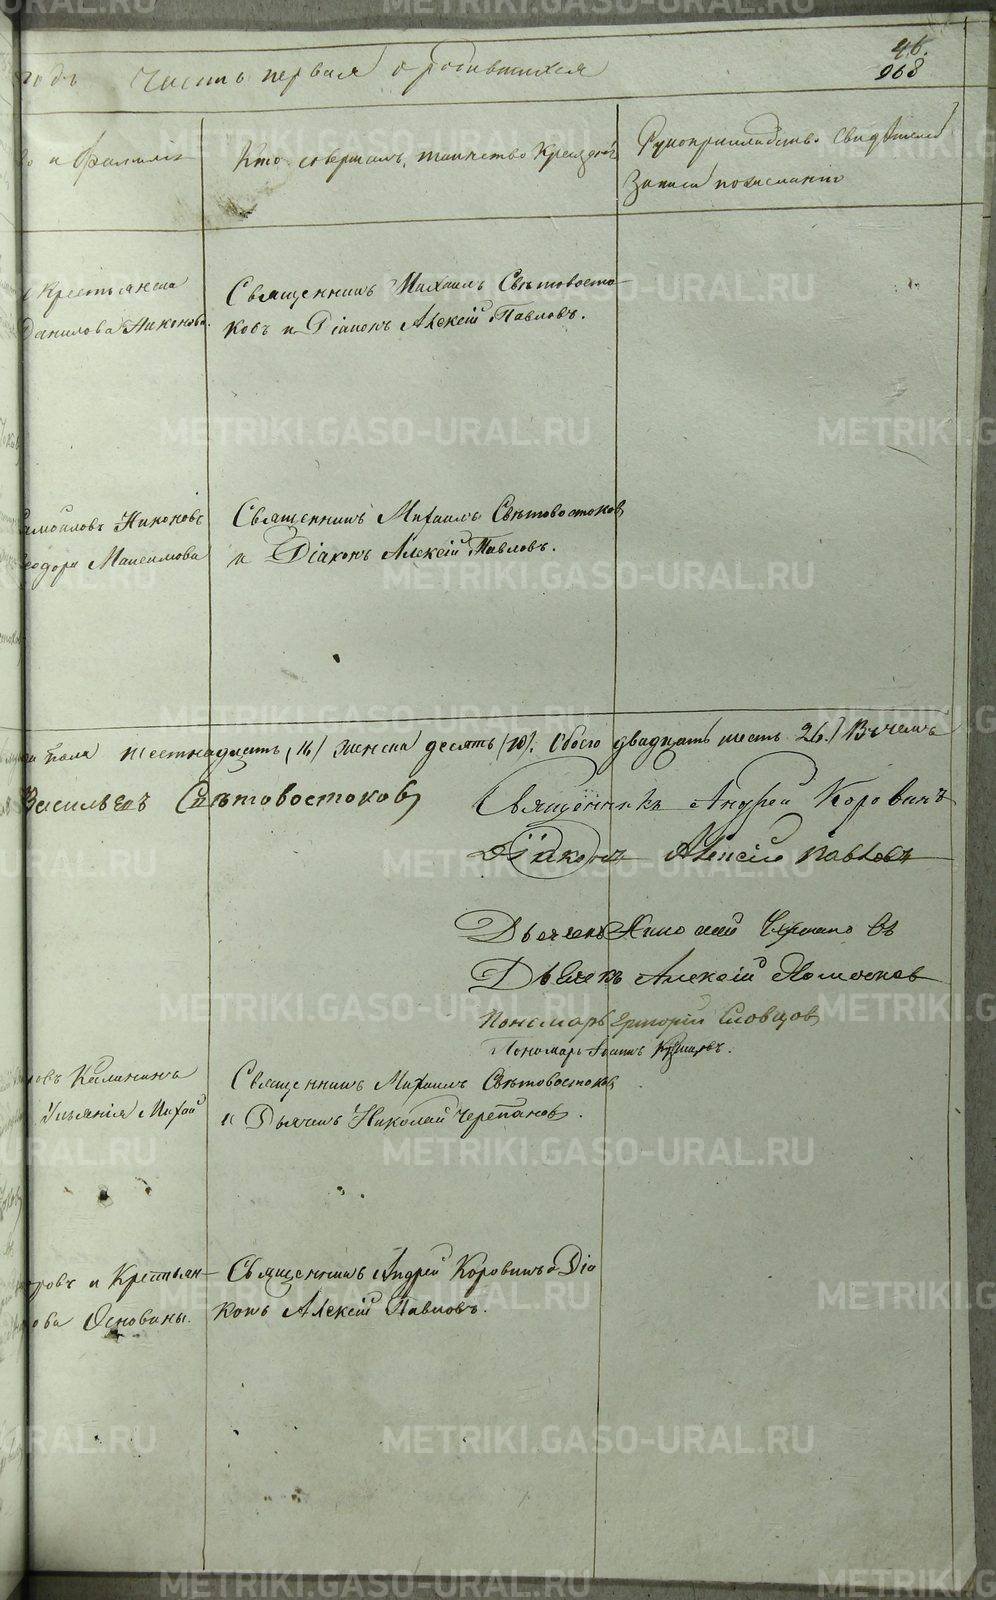 46.
968
годъ Часть первая о родившихся
и Фамилія
Кто совершалъ таинство Крещенія
Рукоприкладство Свидѣтелей
Записи по желанію
Крестьянка
Данилова Никонова.
Священникъ Михаилъ Свѣтовосто-
ковъ и Діаконъ Алексій Павловъ.
Самойловъ Никоновъ
Ѳеодора Максимова
Священникъ Михаилъ Свѣтовостоковъ
и Діаконъ Алексій Павловъ.
пола шестнадцать /16/ женска десять /10/. Обоего двадцать шесть 26./ Въ чемъ
Васильевъ Свѣтовостоковъ
Священникъ Андрей Коровинъ
Діаконъ Алексій Павловъ
Дьячекъ Николай Черепановъ
Дьячекъ Алексій
Пономарь Григорій Словцовъ
Пономарь Іоаннъ
Калининъ
Священникъ Михаилъ Свѣтовостоковъ
и Дьячекъ Николай Черепановъ.
и Крестьян-
Священникъ Андрей Коровинъ и Діа
конъ Алексій Павловъ.
METRIKI.GASO-URAL.RU